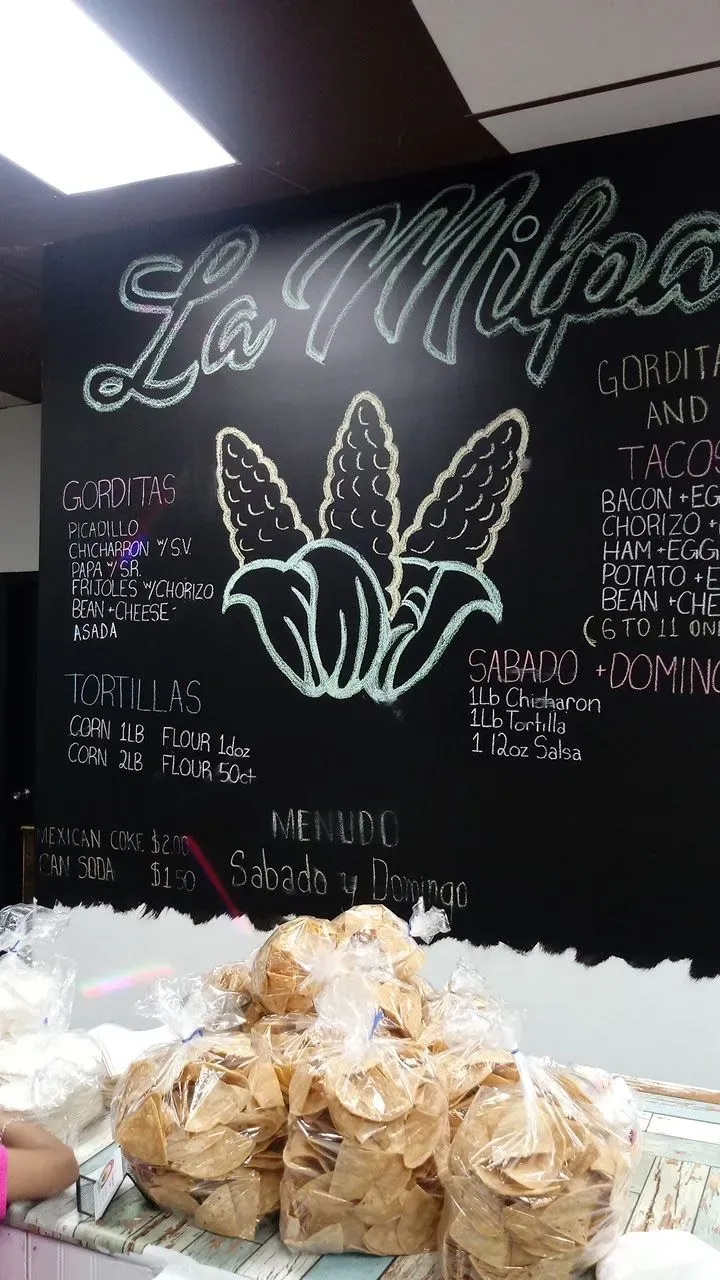 La Milpa
GORDITAS
PICADILLO
CHICHARRON W/ S.V.
PAPA W/ S.R.
FRIJOLES W/CHORIZO
BEAN + CHEESE
ASADA
TORTILLAS
CORN 1LB FLOUR 1doz
CORN 2LB FLOUR 50ct
MEXICAN COKE $2.00
CAN SODA $1.50
MENUDO
Sabado y Domingo
GORDITA
AND
TACOS
BACON + EG
CHORIZO +
HAM + EGG
POTATO + E
BEAN + CHE
(6 TO 11 ON
SABADO + DOMING
1Lb Chicharon
1Lb Tortilla
1 12oz Salsa